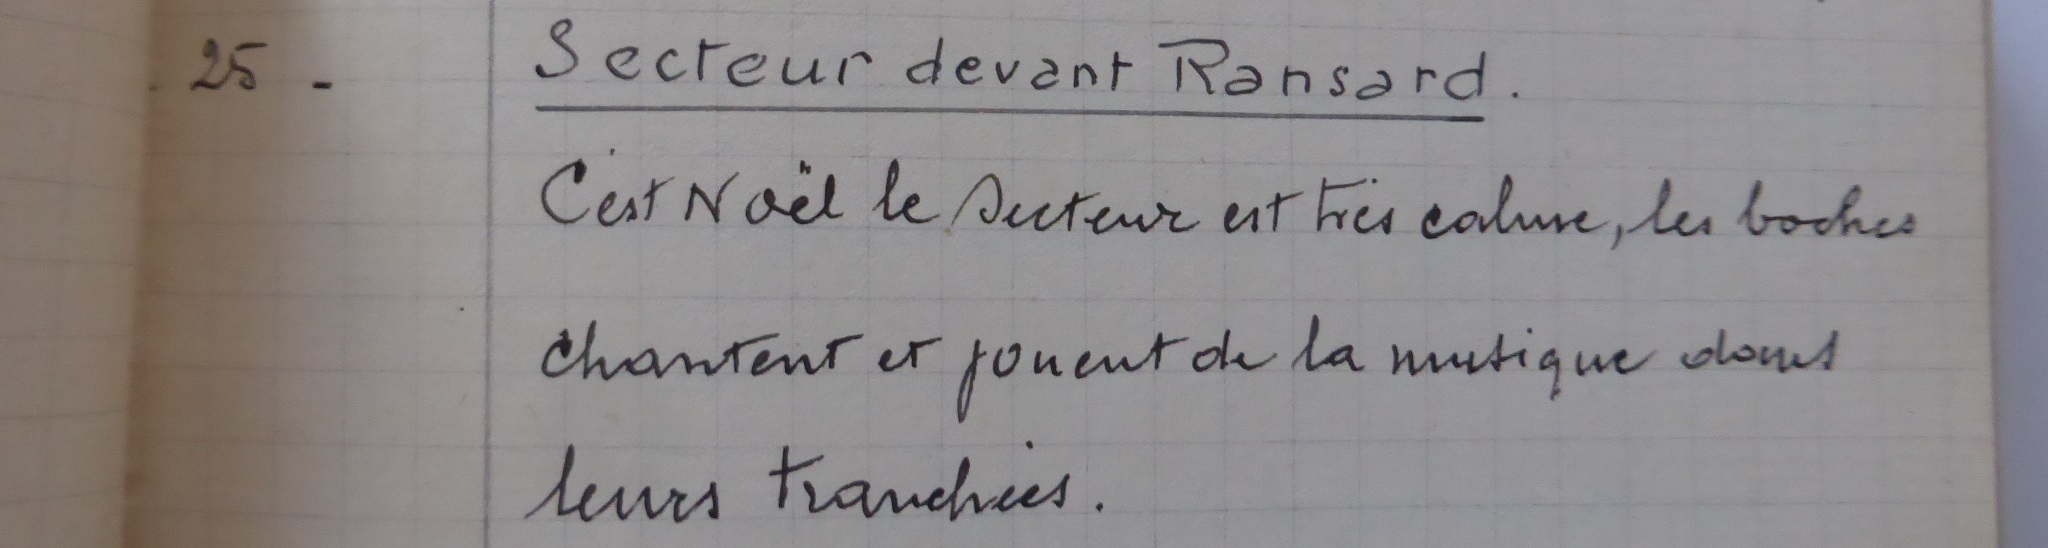 25 - Secteur devant Ransard.
C'est Noël le secteur est très calme, les boches
chantent et jouent de la musique dans
leurs tranchées.